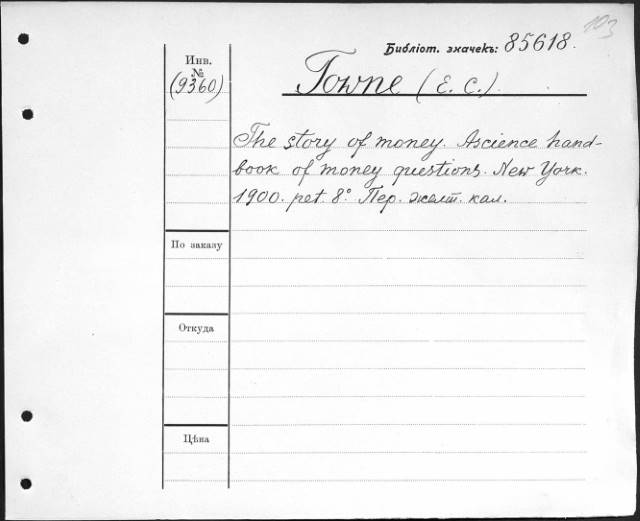 103
Библіот. значекъ: 85618.
Инв.
№
(9360)
Towne (E. C.).
The story of money. Ascience hand-
book of money questions. New York.
1900. pet. 8° Пер. желт. кал.
По заказу
Откуда
Цѣна